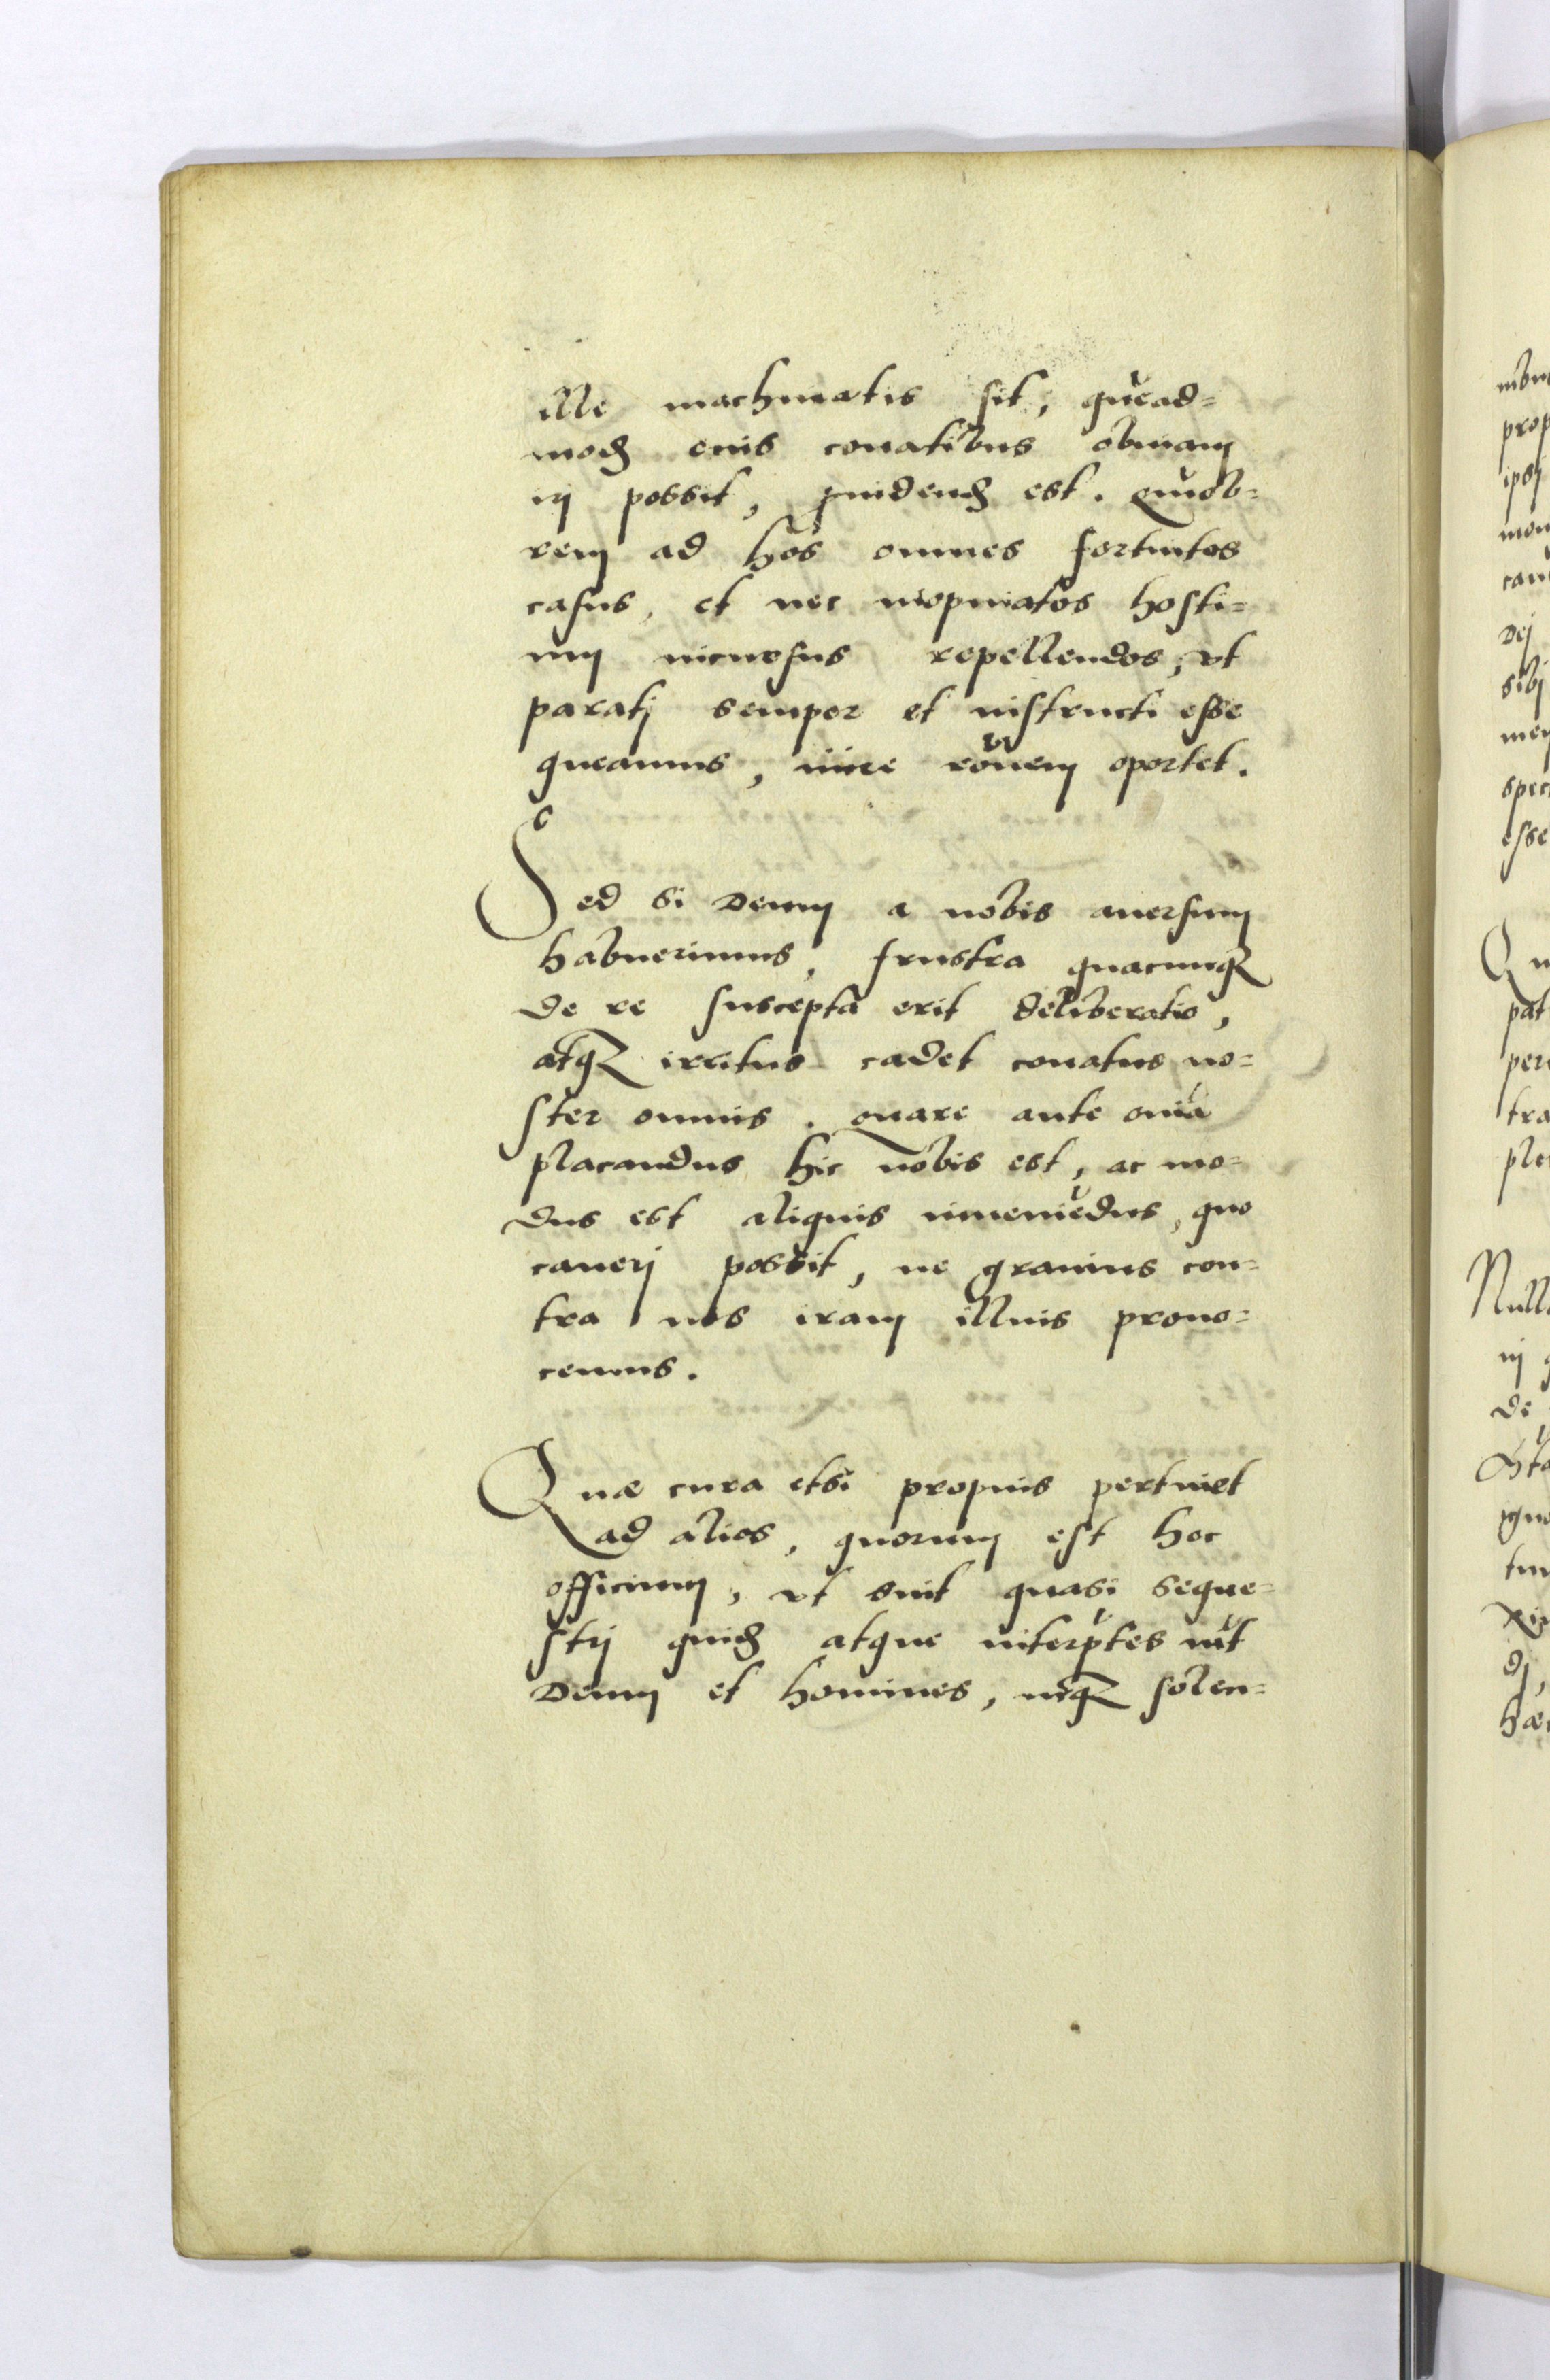 ille machinatus sit, quēad=
modū eius conatibus obuiam
iri possit, puidendū est. Quāob=
rem ad hos omnes fortuitos
casus, et nec inopinatos hosti=
um incursus repellendos, ut
parati semper et instructi esse
queamus, inire rōnem oportet.
Sed si Deum a nobis auersum
habuerimus, frustra quacunq
de re suscepta erit deliberatio,
atq irritus cadet conatus no=
ster omnis. Quare ante oīa
placandus hic nobis est, ac mo=
dus est aliquis inueniēdus, quo
caueri possit, ne grauius con=
tra nos iram illius prouo=
cemus.
Quæ cura etsi propius pertinet
ad alios, quorum est hoc
officium, ut sint quasi seque=
stri quidā atque interp̄tes int̄
Deum et homines, iuq solen=
prop
ipsi
mon
Dei
sibi
esse
Qu
pat
per
tra
pla
Null
de
hæ